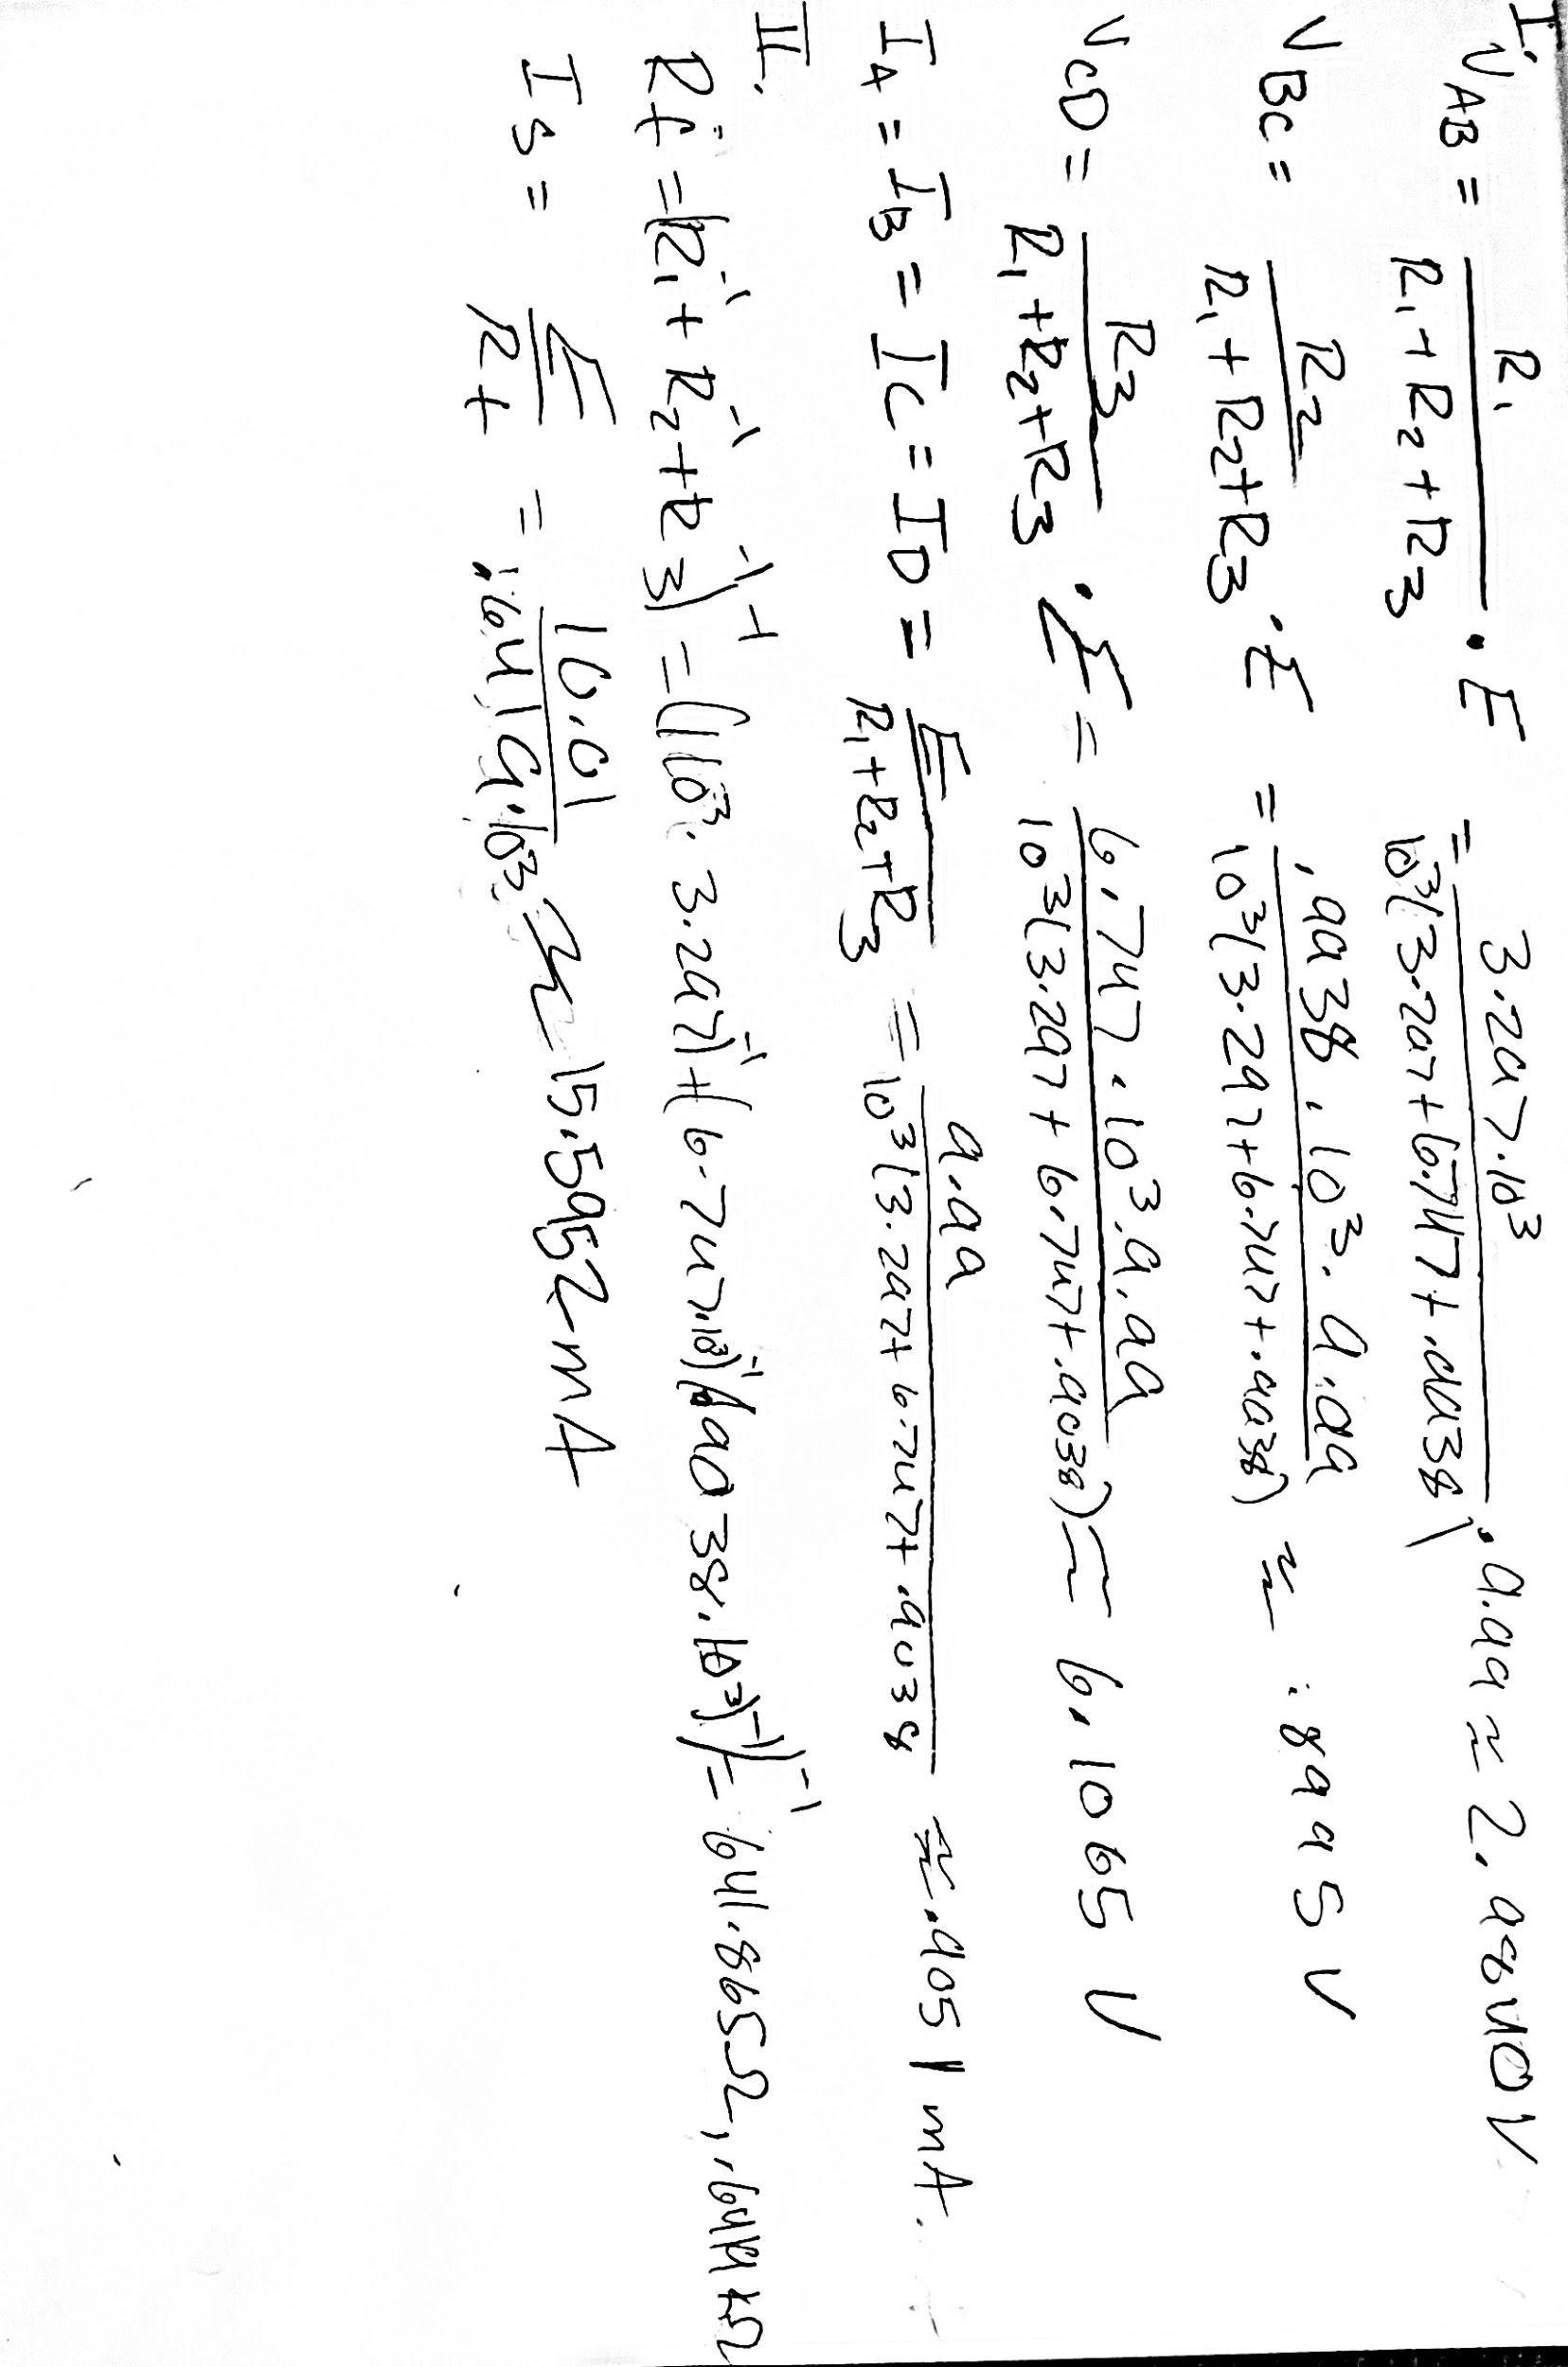 I.
V_AB = R₁/(R₁+R₂+R₃) · E = 3.297·10³/(10³(3.297+6.747+.9938)) · 9.99 ≈ 2.9840 V
V_BC = R₂/(R₁+R₂+R₃) · E = .9938·10³·9.99/(10³(3.297+6.747+.9938)) ≈ .8995 V
V_CD = R₃/(R₁+R₂+R₃) · E = 6.747·10³·9.99/(10³(3.297+6.747+.9038)) ≈ 6.1065 V
I_A = I_B = I_C = I_D = E/(R₁+R₂+R₃) = 9.99/(10³(3.297+6.747+.9038)) ≈ .9051 mA.
II.
R_t = (R₁⁻¹+R₂⁻¹+R₃⁻¹)⁻¹ = ((10³·3.297)⁻¹+(6.747·10³)⁻¹(.9038·10³)⁻¹)⁻¹ = 641.865Ω, .6419kΩ
I_s = E/R_t = 10.01/.6419·10³ ≈ 15.5952 mA